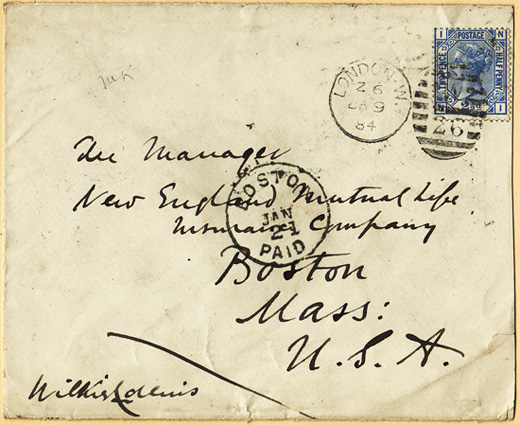 I N
POSTAGE
TWO PENCE
HALFPENNY
I
LONDON·W
Z 6
JA 9
84
26
The Manager
New England Mutual Life
Insurance Company
Boston
Mass:
U.S.A.
BOSTON
JAN
21
PAID
Wilkie Collins